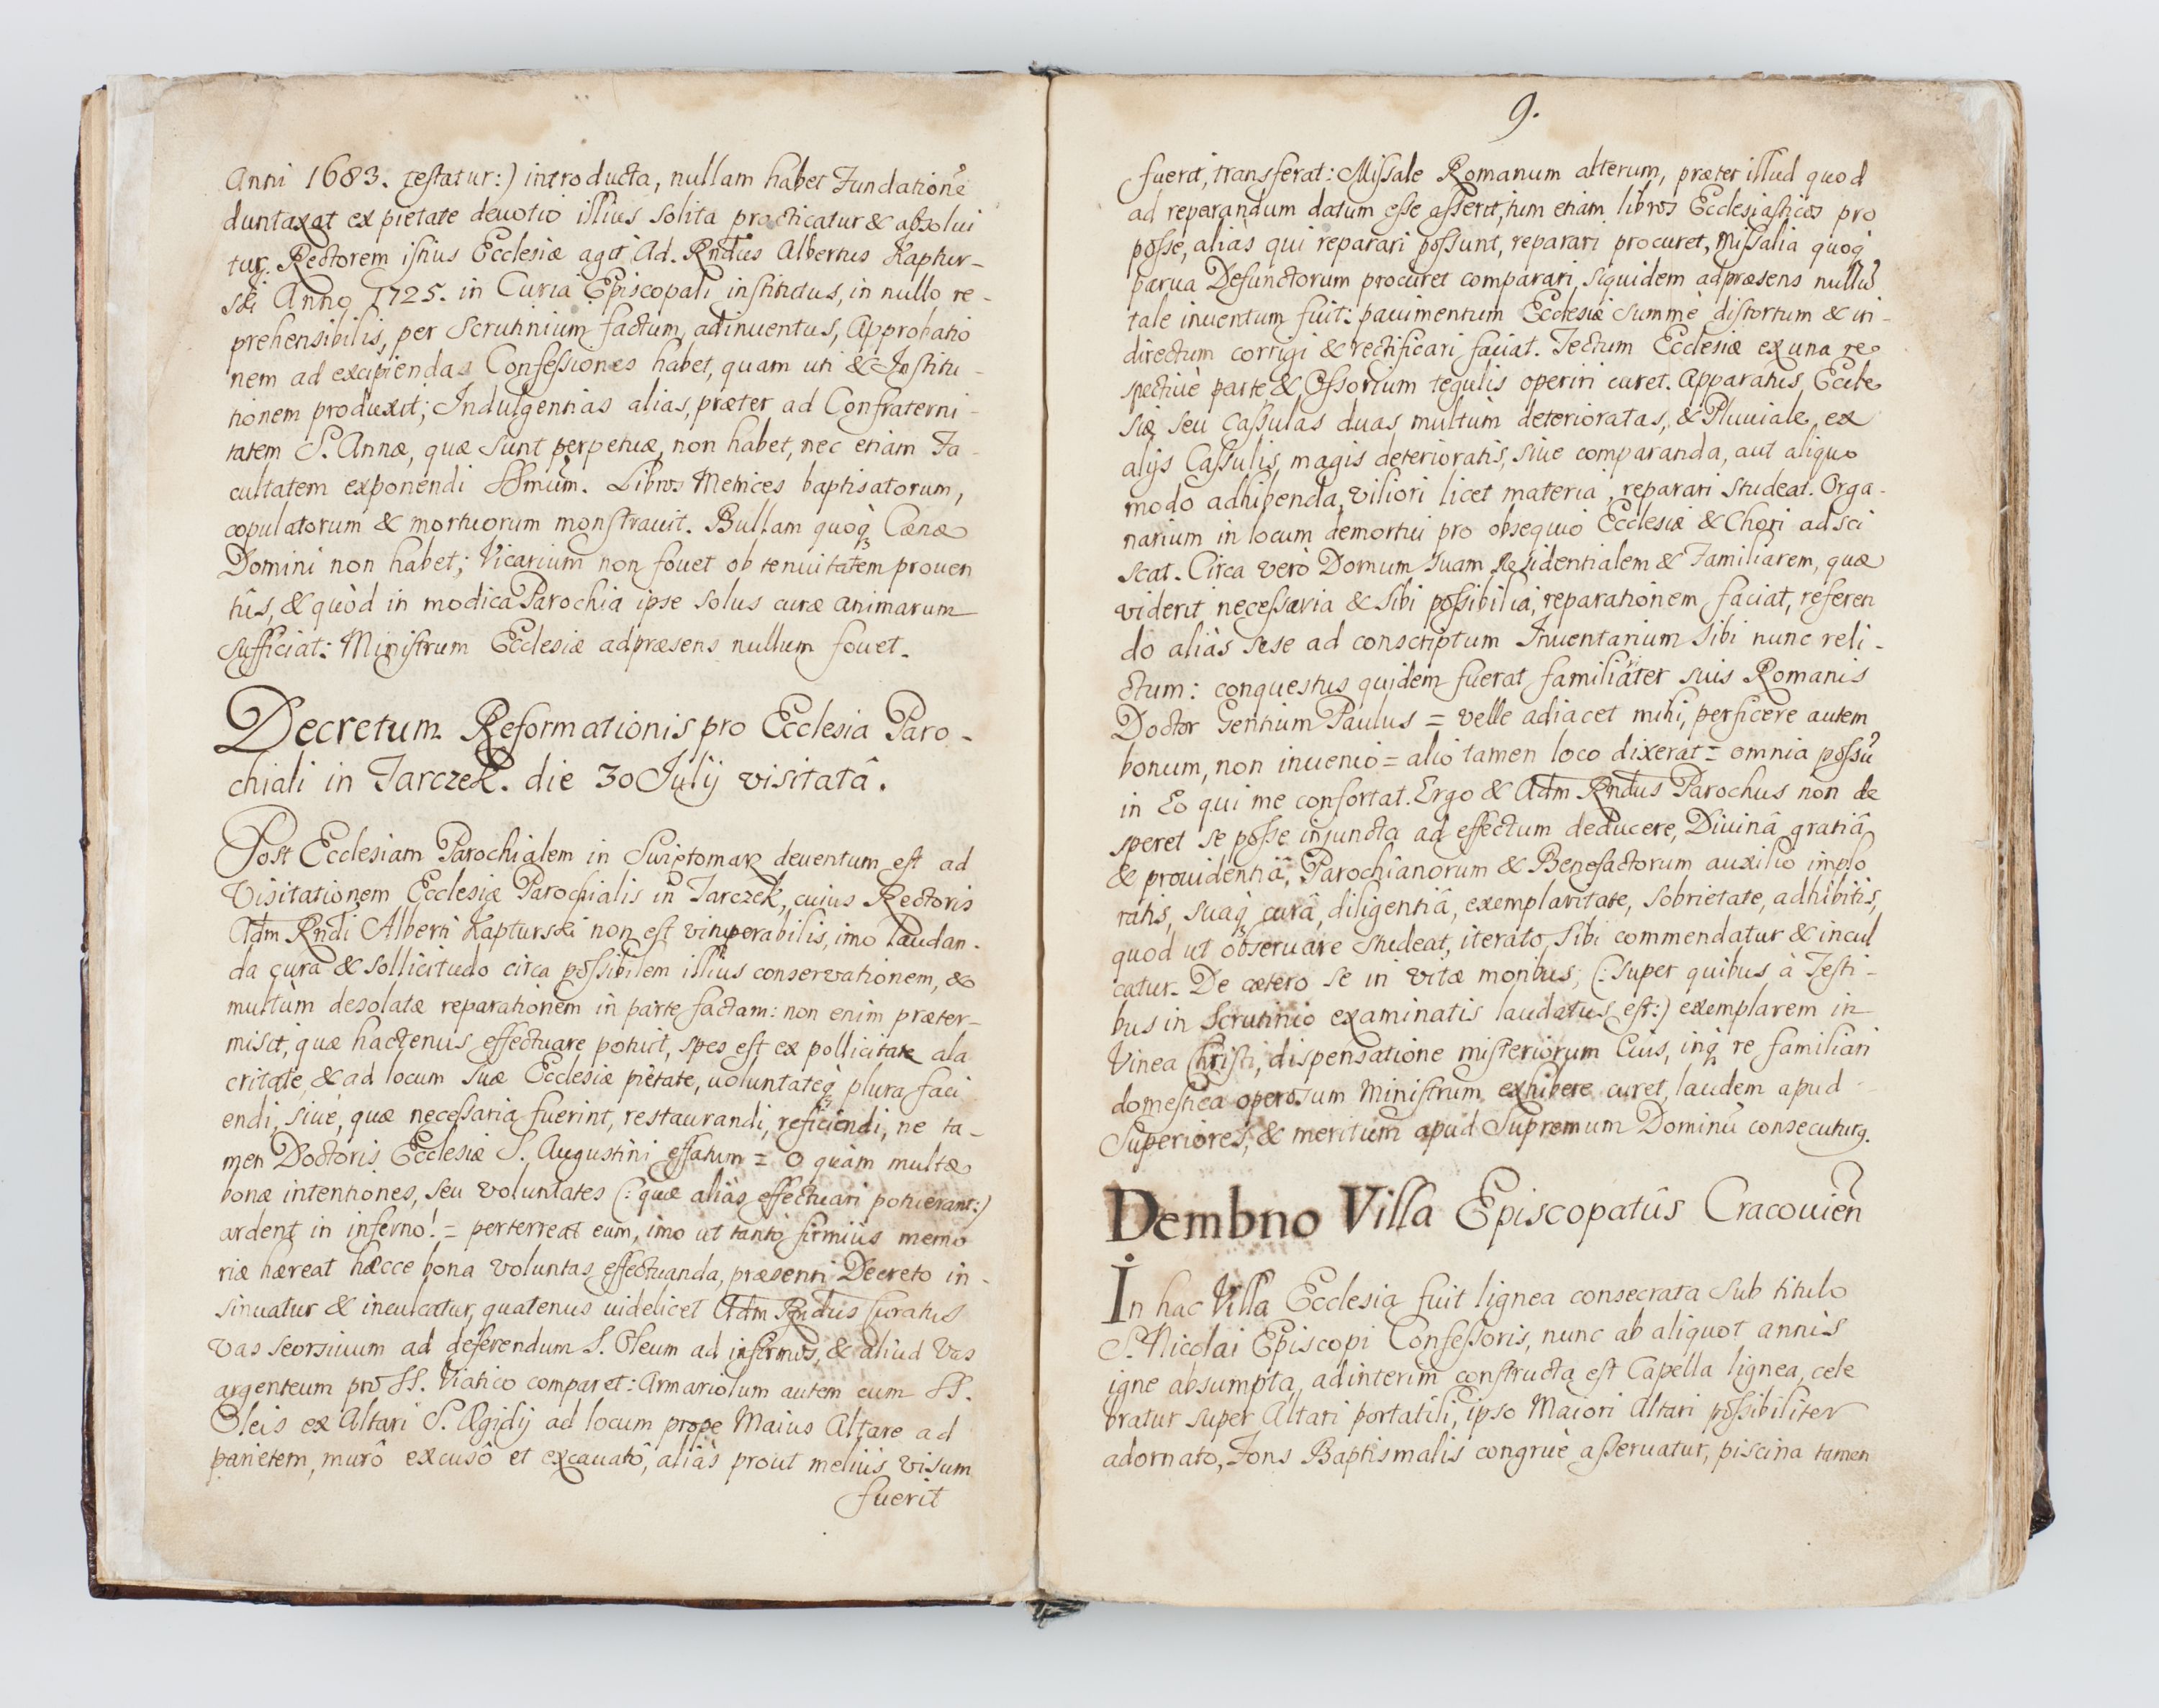 Anni 1683. testatur:) introducta, nullam habet Fundationẽ
duntaxat ex pietate deuotio illius solita practicatur & absolui
tur. Rectorem istius Ecclesiæ agit Ad. Rndus Albertus Kaptur-
ski Anno 1725. in Curia Episcopali institutus, in nullo re-
prehensibilis, per Scrutinium factum, adinuentus, Approbatio
nem ad excipiendas Confessiones habet, quam uti & Institu-
tionem produxit; Indulgentias alias, præter ad Confraterni-
tatem S. Annæ, quæ sunt perpetuæ, non habet, nec etiam Fa-
cultatem exponendi SSmũm. Libros Metrices baptisatorum,
copulatorum & mortuorum monstrauit. Bullam quoq̃ Cænæ
Domini non habet; Vicarium non fouet ob tenuitatem prouen
tûs, & quòd in modica Parochia ipse solus curæ animarum
sufficiat: Ministrum Ecclesiæ adpræsens nullum fouet.
Decretum Reformationis pro Ecclesia Paro-
chiali in Tarczek. die 30 Julij visitatâ.
Post Ecclesiam Parochialem in Swiętomarz deuentum est ad
Visitationem Ecclesiæ Parochialis in Tarczek, cuius Rectoris
Adm Rndi Alberti Kapturski non est vituperabilis, imo laudan-
da cura & sollicitudo circa possibilem illius conservationem, &
multùm desolatæ reparationem in parte factam: non enim præter-
misit, quæ hactenus effectuare potuit, spes est ex pollicitate ala
critate, & ad locum suæ Ecclesiæ pietate, uoluntateq̃ plura faci
endi, siue, quæ necessaria fuerint, restaurandi, reficiendi, ne ta-
men Doctoris Ecclesiæ S. Augustini effatum = O quàm multæ
bonæ intentiones, seu voluntates (: quæ aliàs effectuari potuerant:)
ardent in inferno! = perterreat eum, imo ut tantò firmiùs memo
riæ hæreat hæcce bona voluntas effectuanda, præsenti Decreto in-
sinuatur & inculcatur, quatenus uidelicet Adm Rndus Curatus
Vas seorsiuum ad deferendum S. Oleum ad infirmos, & aliud Vas
argenteum pro SS. Viatico comparet: Armariolum autem cum SS.
Oleis ex Altari S. Ægidij ad locum prope Maius Altare ad
parietem, murô excusô et excauatô, aliàs prout meliùs visum
fuerit
9.
fuerit, transferat: Missale Romanum alterum, præter illud quod
ad reparandum datum esse asserit, tum etiam libros Ecclesiasticos pro
posse, aliàs qui reparari possunt, reparari procuret, Missalia quoq̃
parua Defunctorum procuret comparari, siquidem adpræsens nullũ
tale inuentum fuit: pauimentum Ecclesiæ summè distortum & in-
directum corrigi & rectificari faciat. Tectum Ecclesiæ ex una re
spectiuè parte & Ossorium tegulis operiri curet. Apparatus Eccle
siæ seu Cassulas duas multùm deterioratas, & Pluuiale ex
alijs Cassulis magis deterioratis, siue comparanda, aut aliquo
modo adhibenda, viliori licet materia, reparari studeat. Orga-
narium in locum demortui pro obsequio Ecclesiæ & Chori adsci
scat. Circa verò Domum suam Residentialem & Familiarem, quæ
viderit necessaria & sibi possibilia, reparationem faciat, referen
do aliàs sese ad conscriptum Inuentarium sibi nunc reli-
ctum: conquestus quidem fuerat familiariter suis Romanis
Doctor Gentium Paulus = velle adiacet mihi, perficere autem
bonum, non inuenio = alio tamen loco dixerat = omnia possũ
in Eo qui me confortat. Ergo & Adm Rndus Parochus non de
speret se posse iniuncta ad effectum deducere, Diuinâ gratiâ
& prouidentiâ, Parochianorum & Benefactorum auxilio implo
ratis, suaq̃ curâ, diligentiâ, exemplaritate, sobrietate, adhibitis,
quod ut obseruare studeat, iterato sibi commendatur & incul
catur. De cætero se in vitæ moribus, (: super quibus à Testi-
bus in Scrutinio examinatis laudatus est:) exemplarem in
Vinea Christi, dispensatione misteriorum Eius, inq̃ re familiari
domestica operosum Ministrum exhibere curet, laudem apud
Superiores, & meritum apud Supremum Dominũ consecuturg.
Dembno Villa Episcopatûs Cracouien̄
In hac Villa Ecclesia fuit lignea consecrata sub titulo
S. Nicolai Episcopi Confessoris, nunc ab aliquot annis
igne absumpta, adinterim constructa est Capella lignea, cele
bratur super Altari portatili, ipso Maiori Altari possibiliter
adornato, Fons Baptismalis congruè asseruatur, piscina tamen